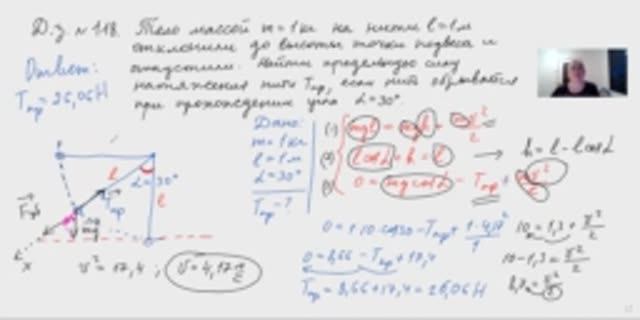 Д.з. №118. Тело массой m = 1 кг на нити l = 1 м
отклонили до высоты точки подвеса и
отпустили. Найти предельную силу
натяжения нити Tпр, если нить обрывается
при прохождении угла α = 30°.
Ответ:
Tпр = 26,06 Н
Дано:
m = 1 кг
l = 1 м
α = 30°
Tпр - ?
(1) mgl = mgh + mv²/2
(2) l cosα + h = l → h = l - l cosα
(3) 0 = mg cosα - Tпр + mv²/l
0 = 1·10·cos30 - Tпр + 1·4,17²/1
0 = 8,66 - Tпр + 17,4
Tпр = 8,66 + 17,4 = 26,06 Н
10 = 1,3 + v²/2
10 - 1,3 = v²/2
8,7 = v²/2
α = 30°
l
l
Tпр
mg
Fцб
x
v² = 17,4 ; v = 4,17